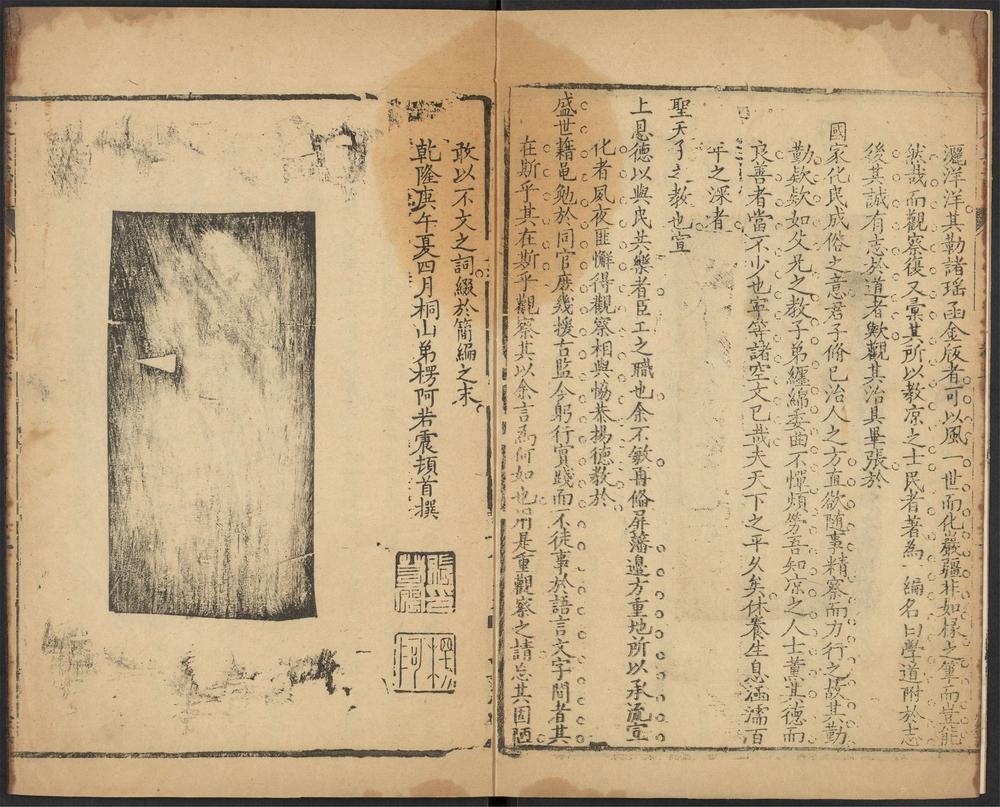 灑洋洋其勤諸瑤函金版者可以風一世而化巖疆非如椽之筆而豈能
然哉而觀察復又彙其所以教凉之士民者著為一編名曰學道附於志
後其誠有志於道者歟觀其治其畢張於
國家化民成俗之意君子脩已治人之方直欲隨事精察而力行之故其勤
勤欵欵如父兄之教子弟纏綿委曲不憚煩勞吾知凉之人士薰其德而
良善者當不少也寧等諸空文已哉夫天下之平久矣休養生息涵濡百
年之深者
聖天子之教也宣
上恩德以與民共樂者臣工之職也余不敏再脩屏藩邊方重地所以承流宣
化者夙夜匪懈得觀察相與恊恭揚德教於
盛世藉黽勉於同官庶幾援古監今躬行實踐而不徒事於語言文字間者其
在斯乎其在斯乎觀察其以余言為何如也用是重觀察之請忘其固陋
敢以不文之詞綴於簡編之末
乾隆庚午夏四月桐山弟楞阿若震頓首撰